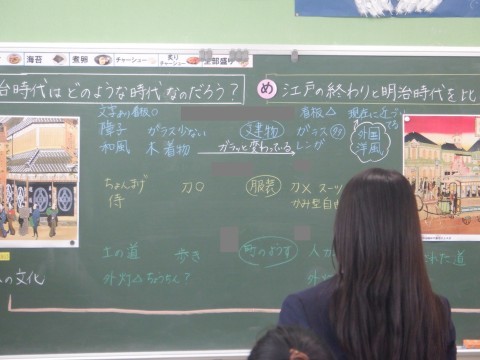 海苔 煮卵 チャーシュー 炙りチャーシュー 全部盛り
台時代はどのような時代なのだろう？
め 江戸の終わりと明治時代を比
文字あり看板○ 看板△ 現在に近づいてる
障子 ガラス少ない 建物 ガラス多 外国
和風 木着物 ガラッと変わっている。 レンガ 洋風
ちょんまげ 刀○ 服装 刀× スーツ
侍 かみ型自由
土の道 歩き 町のようす 人力 された道
外灯△ ちょうちん？ 外灯
の文化